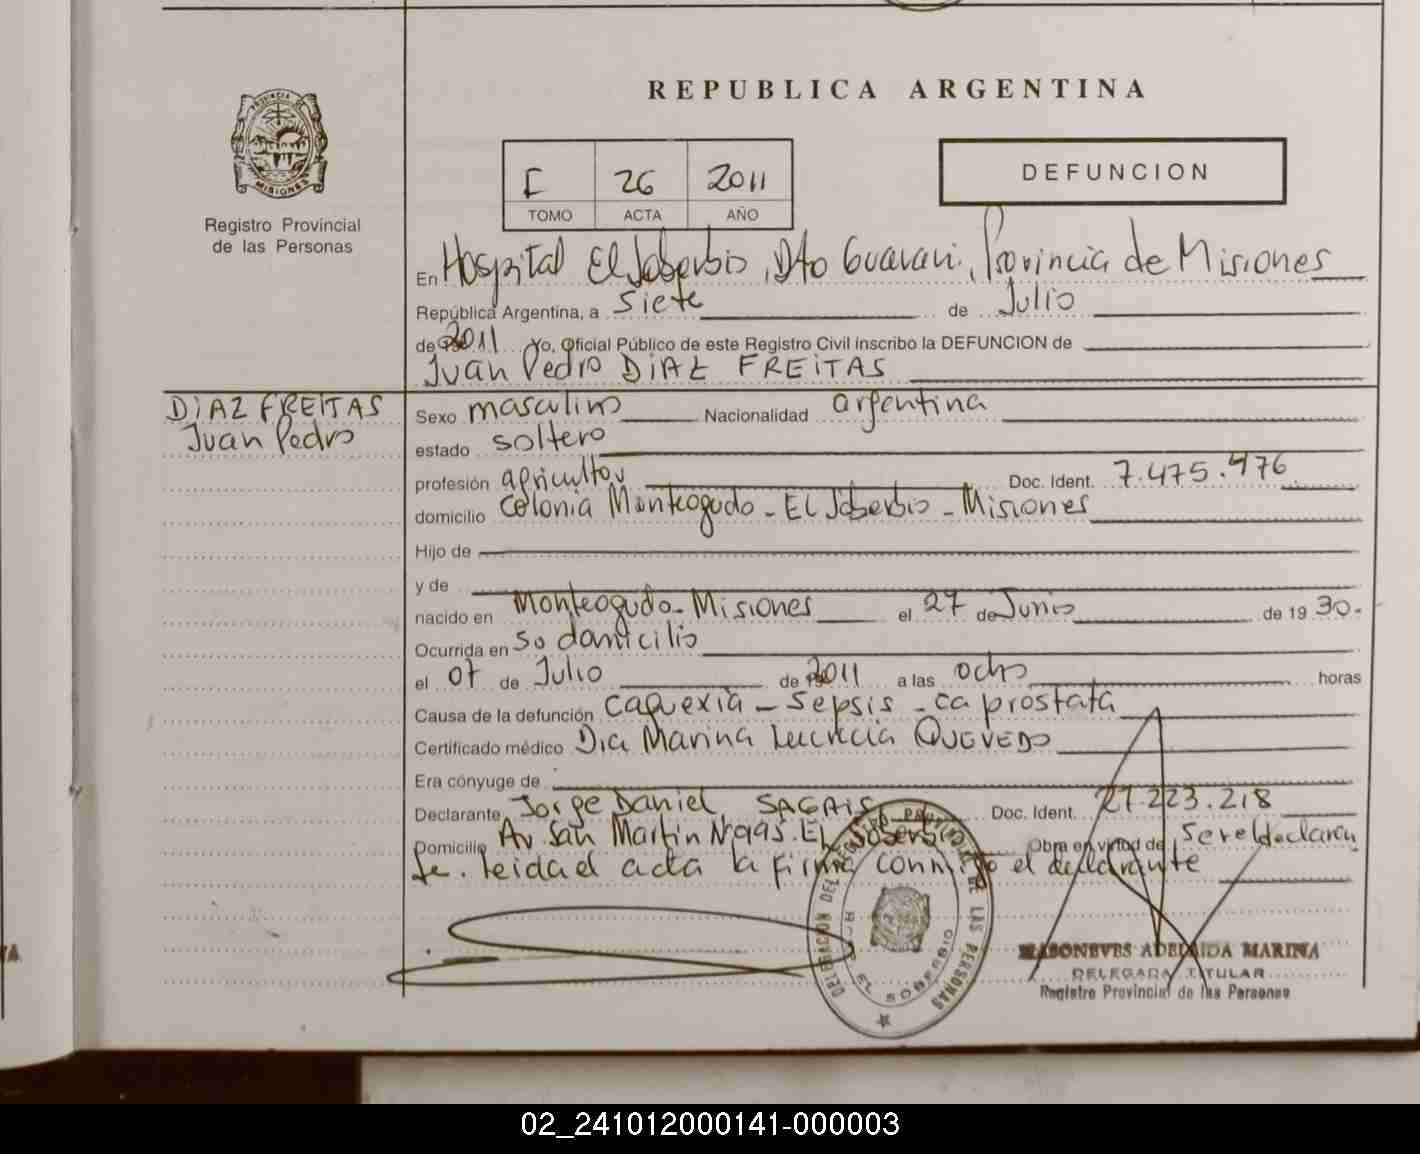 REPUBLICA ARGENTINA
PROVINCIA DE
MISIONES
Registro Provincial
de las Personas
I 26 2011
TOMO ACTA AÑO
DEFUNCION
En Hospital El Soberbio, Dto Guarani, Provincia de Misiones
República Argentina, a Siete de Julio
de 2011 Yo, Oficial Público de este Registro Civil inscribo la DEFUNCION de
Juan Pedro DIAZ FREITAS
DIAZ FREITAS
Juan Pedro
Sexo masculino Nacionalidad argentina
estado soltero
profesión agricultor Doc. Ident. 7.475.476
domicilio Colonia Monteagudo - El Soberbio - Misiones
Hijo de
y de
nacido en Monteagudo - Misiones el 27 de Junio de 1930.
Ocurrida en su domicilio
el 07 de Julio de 2011 a las ocho horas
Causa de la defunción caquexia - sepsis - ca prostata
Certificado médico Dra Marina Lucrecia QUEVEDO
Era cónyuge de
Declarante Jorge Daniel Doc. Ident. 27.223.218
Domicilio Av San Martin Nº 995. El Soberbio Obra en virtud de Ser el declaran
te. Leida el acta la firma conmigo el declarante
DELEGACION DEL REGISTRO PROVINCIAL DE LAS PERSONAS
EL SOBERBIO
ADELAIDA MARINA
DELEGADA TITULAR
Registro Provincial de las Personas
02_241012000141-000003